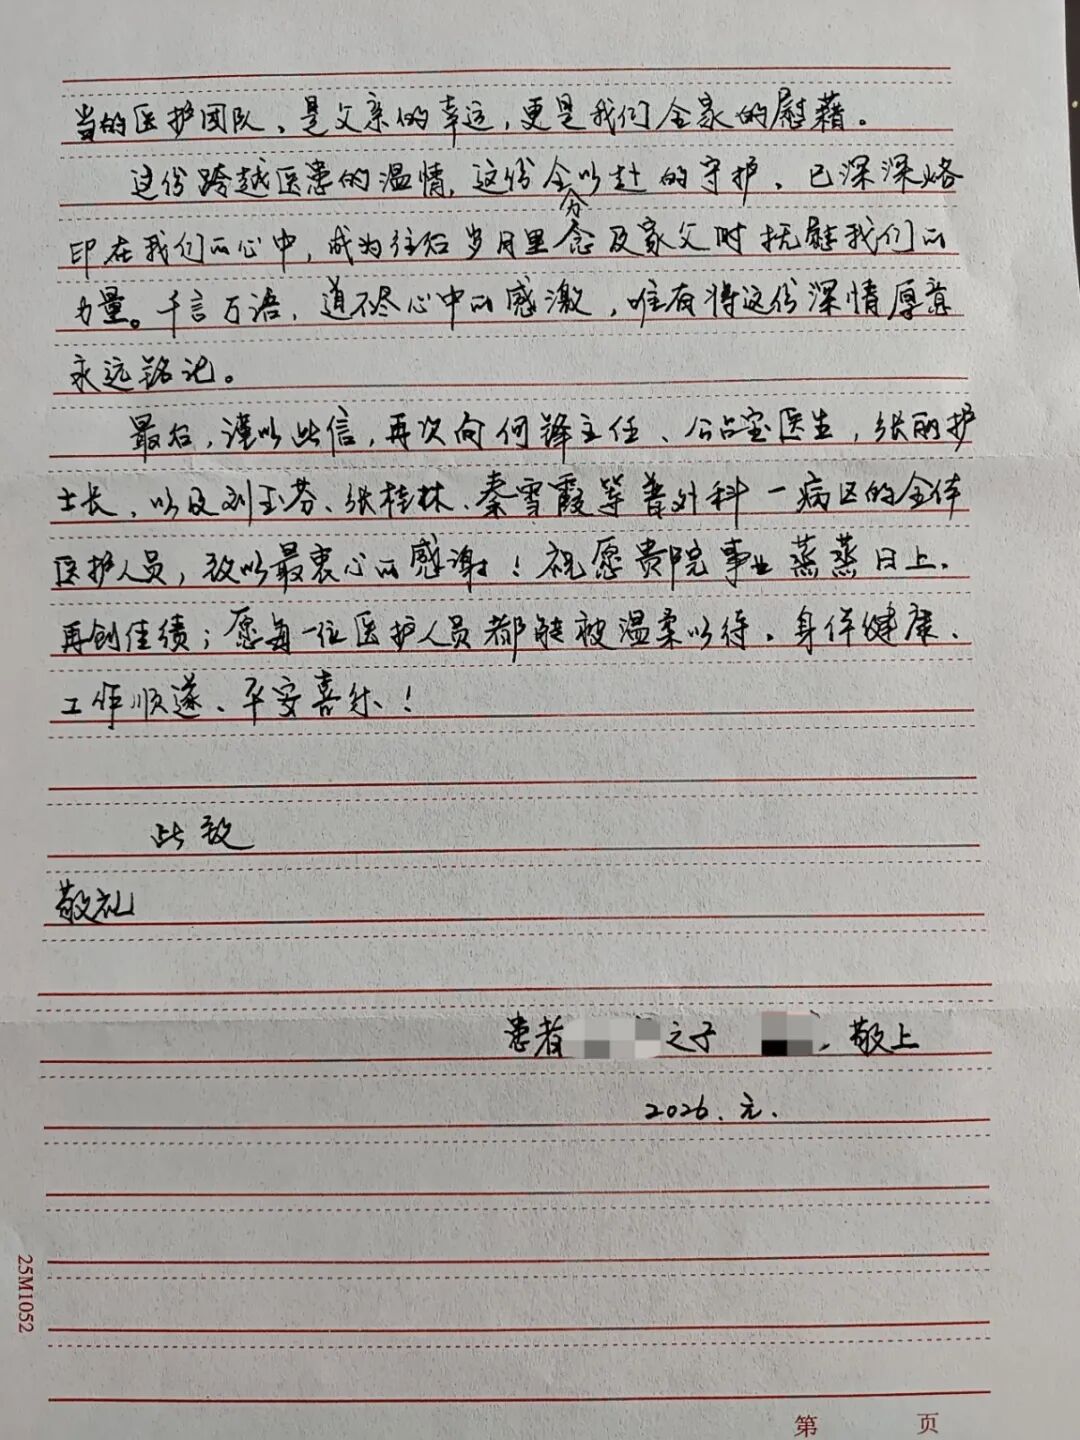 当的医护团队、是父亲的幸运，更是我们全家的慰藉。
这份跨越医患的温情，这份全力以赴的守护、已深深烙
印在我们的心中，成为往后岁月里念及家父时抚慰我们的
力量。千言万语，道不尽心中的感激，唯有将这份深情厚意
永远铭记。
最后，谨以此信，再次向何锋主任、公占宝医生，张丽护
士长、以及刘玉芬、张桂林、秦雪霞等普外科一病区的全体
医护人员，致以最衷心的感谢！祝愿贵院事业蒸蒸日上、
再创佳绩；愿每一位医护人员都能被温柔以待、身体健康、
工作顺遂、平安喜乐！
此致
敬礼
患者 之子 ，敬上
2026.元.
25M1052
第 页